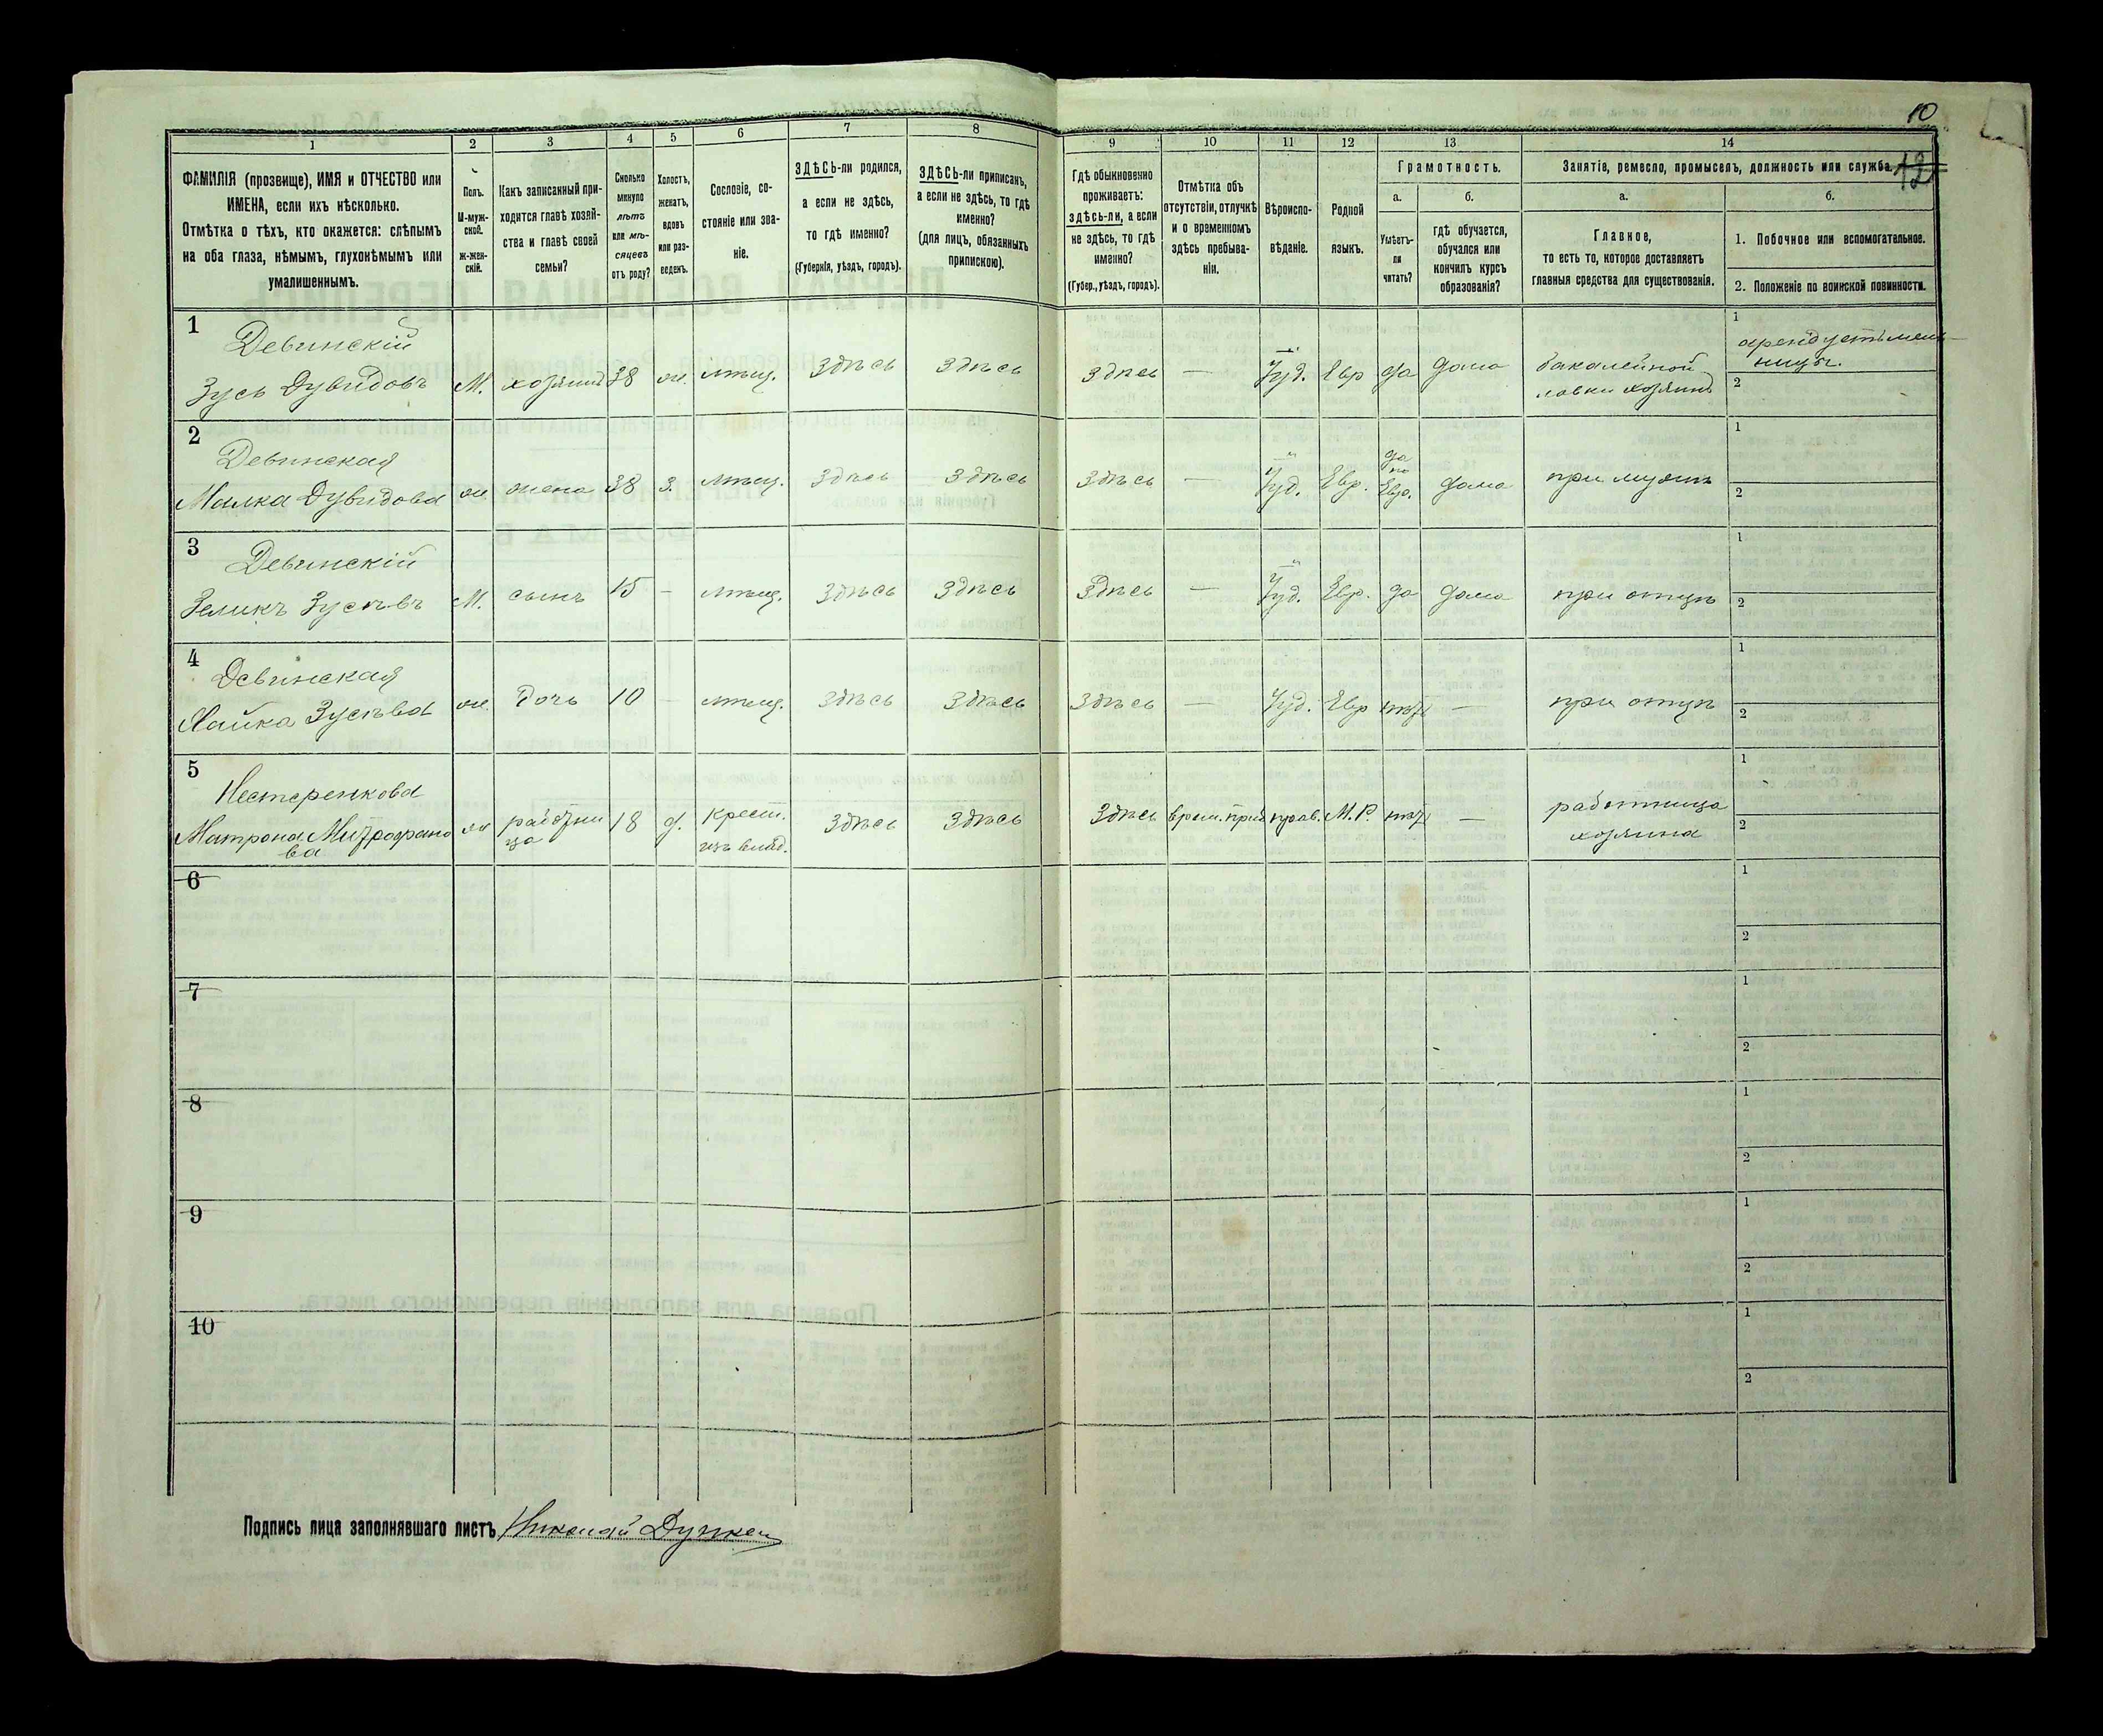 10
12
1 2 3 4 5 6 7 8 9 10 11 12 13 14
ФАМИЛІЯ (прозвище), ИМЯ и ОТЧЕСТВО или
ИМЕНА, если ихъ нѣсколько.
Отмѣтка о тѣхъ, кто окажется: слѣпымъ
на оба глаза, нѣмымъ, глухонѣмымъ или
умалишеннымъ.
Полъ.
М-муж-
ской.
Ж-жен-
скій.
Какъ записанный при-
ходится главѣ хозяй-
ства и главѣ своей
семьи?
Сколько
минуло
лѣтъ
или мѣ-
сяцевъ
отъ роду?
Холостъ,
женатъ,
вдовъ
или раз-
веденъ.
Сословіе, со-
стояніе или зва-
ніе.
ЗДѢСЬ-ли родился,
а если не здѣсь,
то гдѣ именно?
(Губернія, уѣздъ, городъ).
ЗДѢСЬ-ли приписанъ,
а если не здѣсь, то гдѣ
именно?
(для лицъ, обязанныхъ
припискою).
Гдѣ обыкновенно
проживаетъ:
здѣсь-ли, а если
не здѣсь, то гдѣ
именно?
(Губер., уѣздъ, городъ).
Отмѣтка объ
отсутствіи, отлучкѣ
и о временномъ
здѣсь пребыва-
ніи.
Вѣроиспо-
вѣданіе.
Родной
языкъ.
Грамотность.
а.
Умѣетъ-
ли
читать?
б.
гдѣ обучается,
обучался или
кончилъ курсъ
образованія?
Занятіе, ремесло, промыселъ, должность или служба.
а.
Главное,
то есть то, которое доставляетъ
главныя средства для существованія.
б.
1. Побочное или вспомогательное.
2. Положеніе по воинской повинности.
1
Девинскій
Зусь Дувидовъ М. хозяинъ 38 ж. мѣщ. Здѣсь Здѣсь Здѣсь — Іуд. Евр да дома бакалейной
лавки хозяинъ
1 арендуетъ мель-
ницу.
2
2
Девинская
Малка Дувидова ж. жена 38 з. мѣщ. Здѣсь Здѣсь Здѣсь — Іуд. Евр. да по Евр. дома при мужѣ
1
2
3
Девинскій
Зеликъ Зусевъ М. сынъ 15 — мѣщ. Здѣсь Здѣсь Здѣсь — Іуд. Евр. да дома при отцѣ
1
2
4
Девинская
Хайка Зусева ж. дочь 10 — мѣщ. Здѣсь Здѣсь Здѣсь — Іуд. Евр нѣтъ — при отцѣ
1
2
5
Нестеренкова
Матрона Митрофано
ва
ж работни
ца
18 д. крест.
изъ влад.
Здѣсь Здѣсь Здѣсь врем. преб прав. М.Р. нѣтъ — работница
хозяина
1
2
6
1
2
7
1
2
8
1
2
9
1
2
10
1
2
Подпись лица заполнявшаго листъ Николай